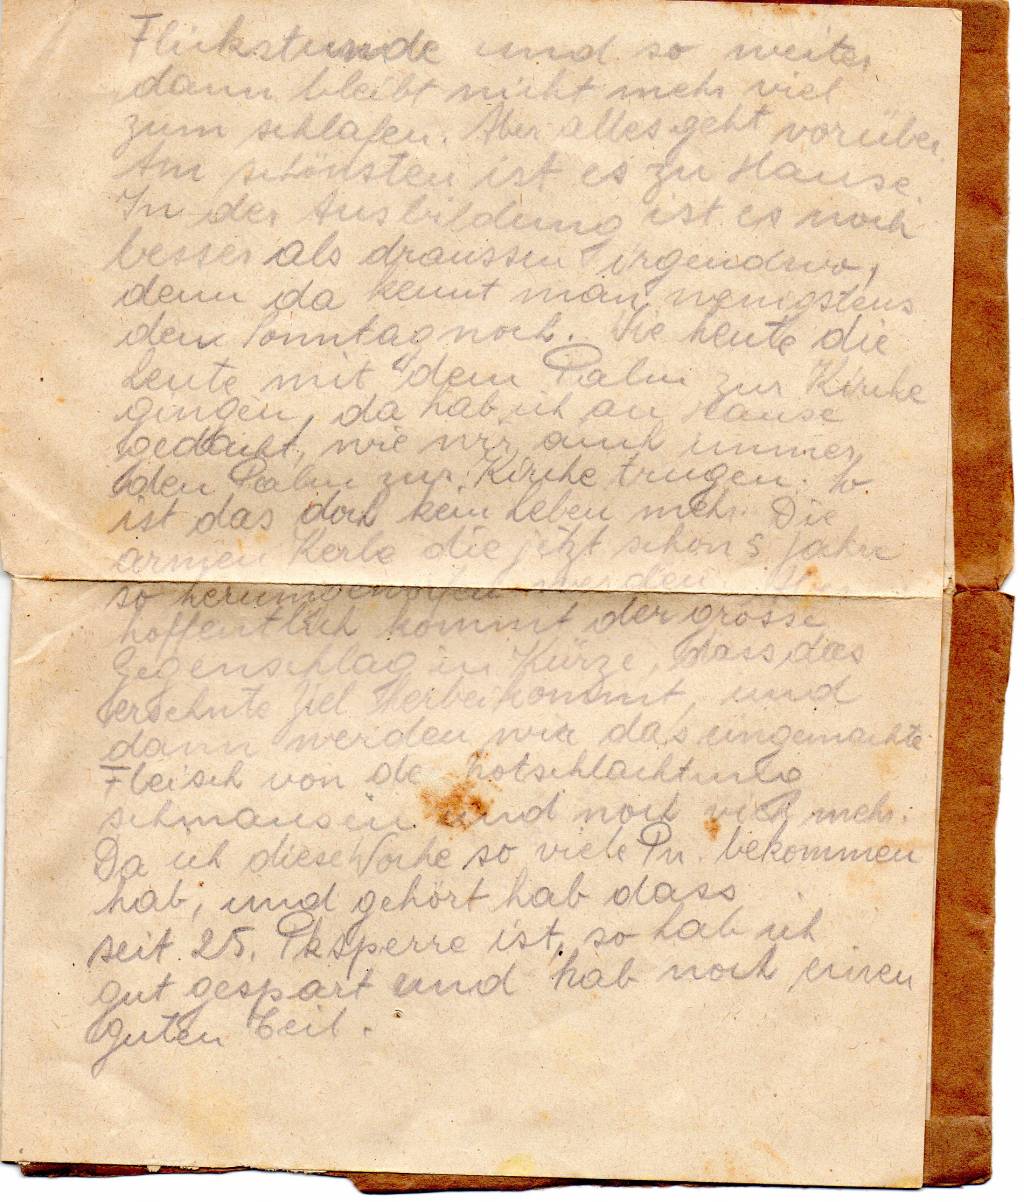 Flickstunde und so weiter
dann bleibt nicht mehr viel
zum schlafen. Aber alles geht vorüber.
Am schönsten ist es zu Hause
In der Ausbildung ist es noch
besser als draussen irgendswo,
denn da kennt man wenigstens
den Sonntag noch. Wie heute die
Leute mit dem Palm zur Kirche
gingen, da hab ich an Hause
gedacht, wie wir auch immer
den Palm zur Kirche trugen. So
ist das doch kein Leben mehr. Die
armen Kerle die jetzt schon 5 Jahre
so herumgeworfen werden.
hoffentlich kommt der grosse
Gegenschlag in Kürze, dass das
ersehnte Ziel herbeikommt, und
dann werden wir das eingemachte
Fleisch von de Notschlachtung
schmausen und noch viel mehr.
Da ich diese Woche so viele Pn. bekommen
hab, und gehört hab dass
seit 25. Pksperre ist, so hab ich
gut gespart und hab noch einen
guten Teil.